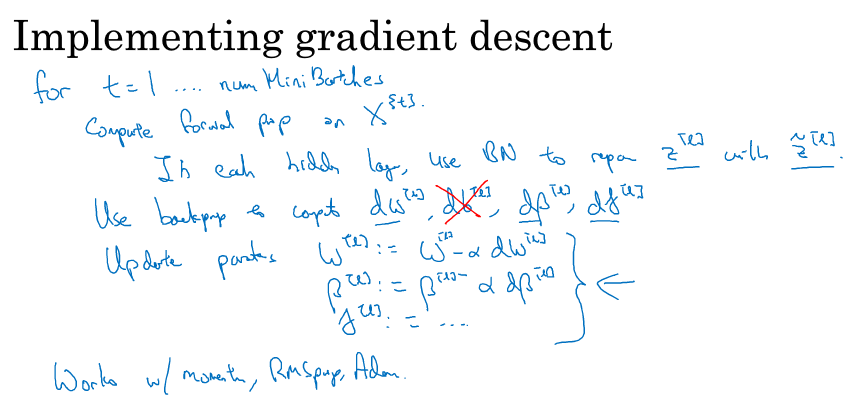 Implementing gradient descent
for t = 1 .... num Mini Batches
Compute forward prop on X^{t}.
In each hidden layer, use BN to repace z^[l] with z̃^[l].
Use backprop to compute dw^[l], db^[l], dβ^[l], dγ^[l]
Update parameters w^[l] := w^[l] - α dw^[l]
β^[l] := β^[l] - α dβ^[l]
γ^[l] := ....
Works w/ momentum, RMSprop, Adam.